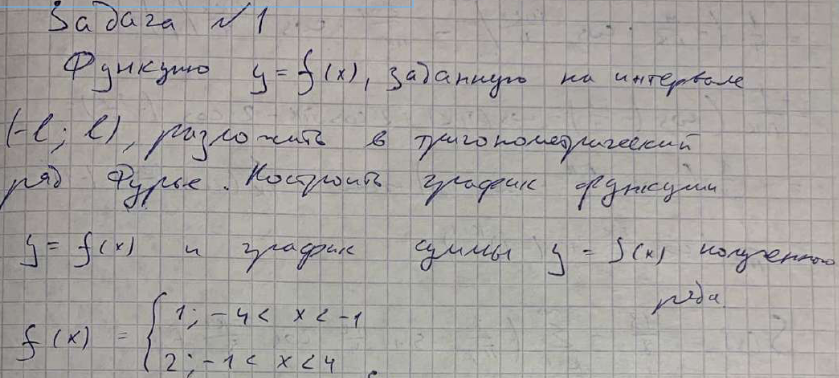 Задача №1
Функцию y = f(x), заданную на интервале
(-l; l), разложить в тригонометрический
ряд Фурье. Построить график функции
y = f(x) и график суммы y = S(x) полученного
ряда
f(x) = { 1; -4 < x < -1
2; -1 < x < 4 .